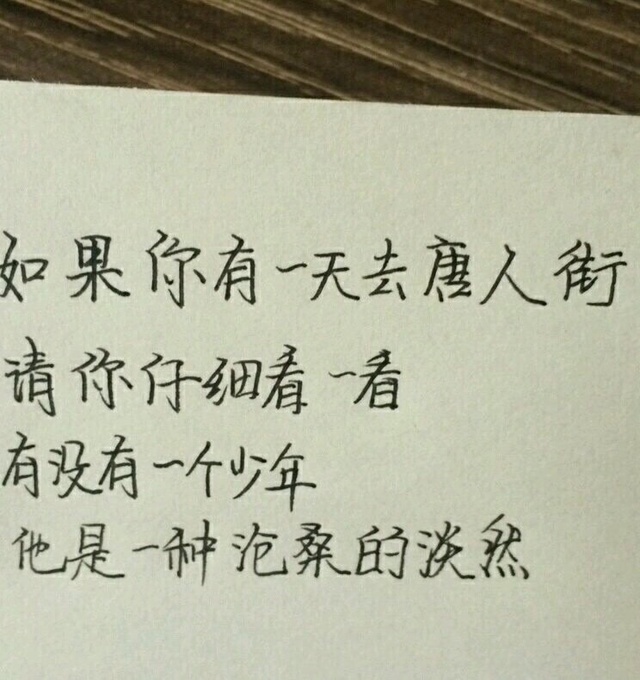 如果你有一天去唐人街
请你仔细看一看
有没有一个少年
他是一种沧桑的淡然